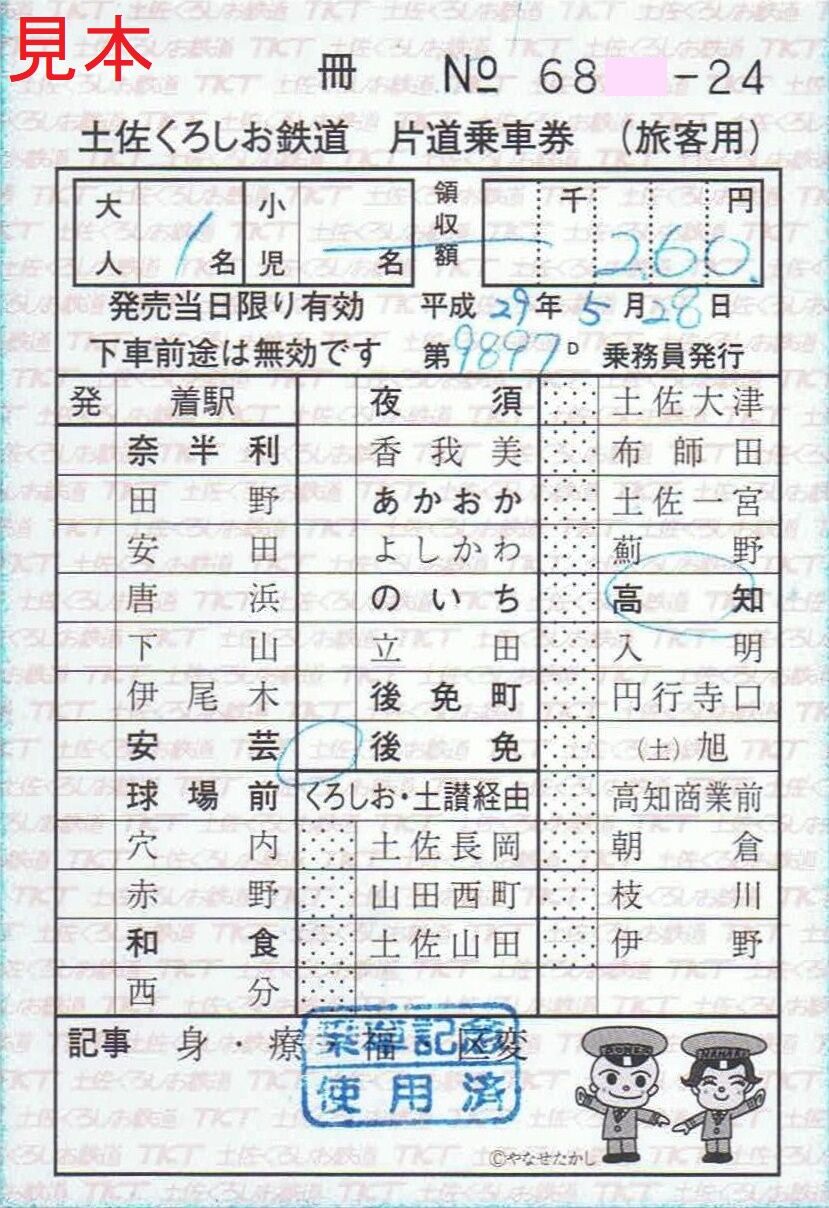 見本
冊 № 68 -24
土佐くろしお鉄道 片道乗車券 (旅客用)
大人 1名 小児 名 領収額 千 260. 円
発売当日限り有効 平成29年5月28日
下車前途は無効です 第9897D 乗務員発行
発 着駅 夜須 土佐大津
奈半利 香我美 布師田
田野 あかおか 土佐一宮
安田 よしかわ 薊野
唐浜 のいち 高知
下山 立田 入明
伊尾木 後免町 円行寺口
安芸 後免 (土)旭
球場前 くろしお・土讃経由 高知商業前
穴内 土佐長岡 朝倉
赤野 山田西町 枝川
和食 土佐山田 伊野
西分
記事 身・療・福 区変
乗車記念
使用済
©やなせたかし